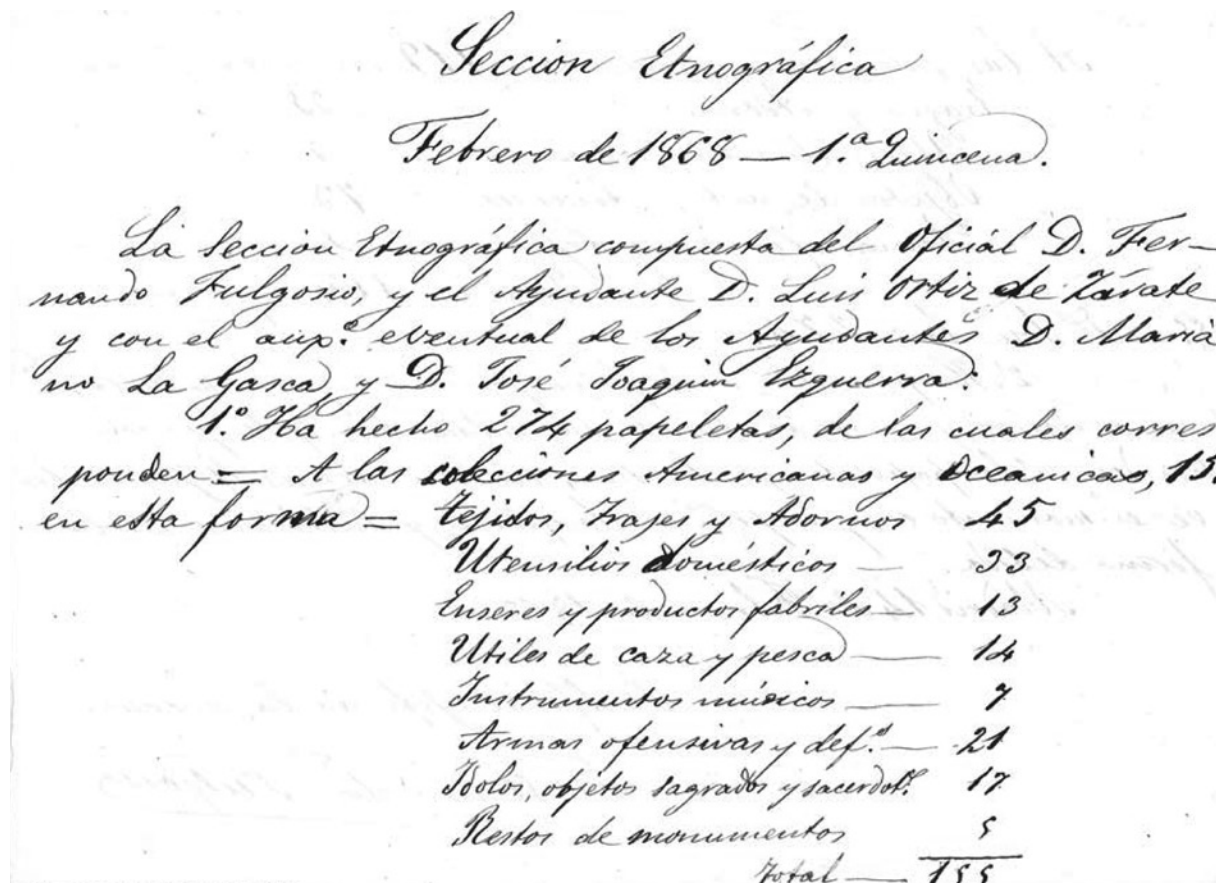 Seccion Etnográfica
Febrero de 1868 — 1.ª Quincena.
La Seccion Etnográfica compuesta del Oficial D. Fer-
nando Fulgosio, y el Ayudante D. Luis Ortiz de Zárate
y con el aux.º eventual de los Ayudantes D. Maria
no La Gasca, y D. José Joaquin Ezquerra:
1.º Ha hecho 274 papeletas, de las cuales corres
ponden = A las colecciones Americanas y Oceanicas, 15
en esta forma = Tejidos, Trajes y Adornos 45
Utensilios domésticos — 33
Enseres y productos fabriles — 13
Utiles de caza y pesca — 14
Instrumentos músicos — 7
Armas ofensivas y def.s — 21
Idolos, objetos sagrados y sacerdot.s 17
Restos de monumentos 5
Total — 155